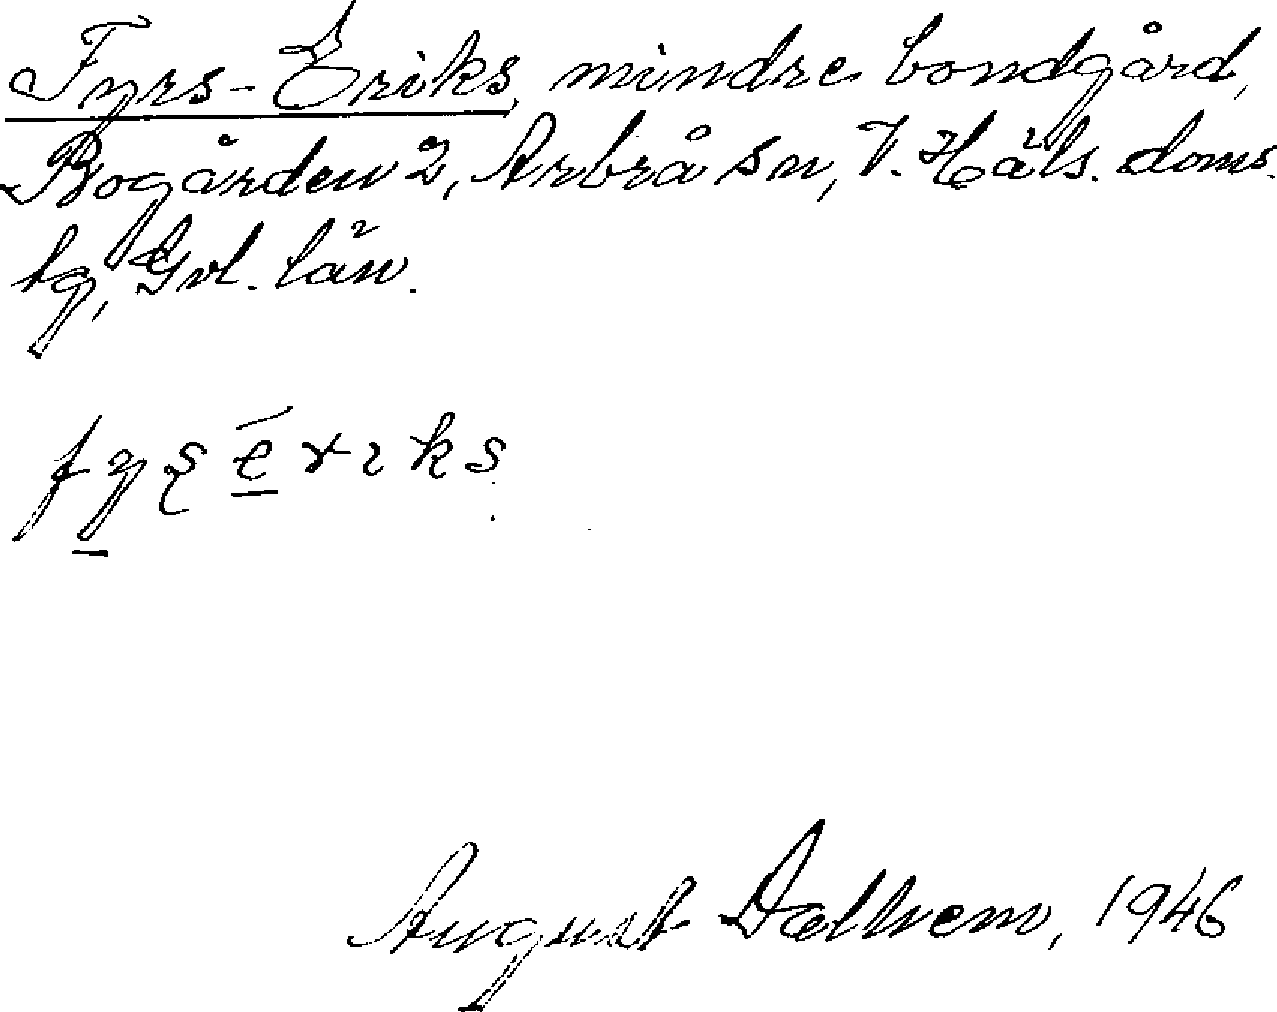 Fyrs-Eriks, mindre bondgård,
Bogården 2, Arbrå sn, V. Häls. doms.
tg, Gvl. län.
August Dalhem, 1946